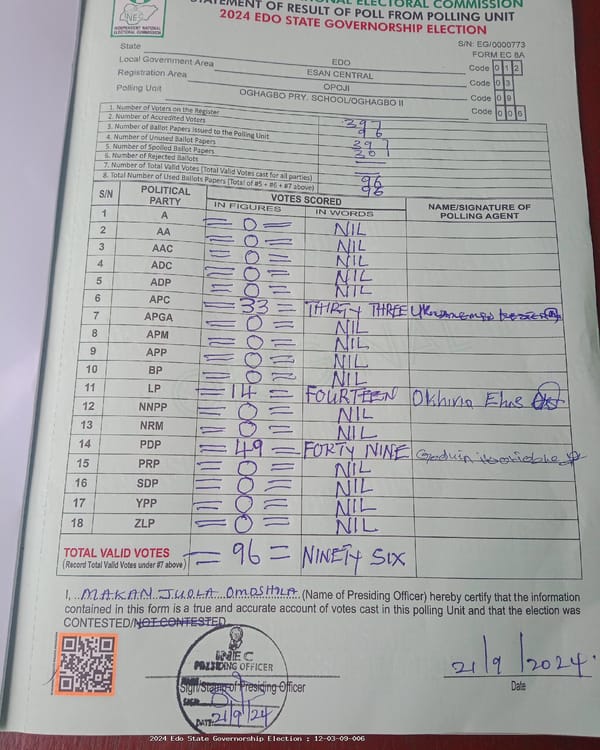 INDEPENDENT NATIONAL ELECTORAL COMMISSION
STATEMENT OF RESULT OF POLL FROM POLLING UNIT
2024 EDO STATE GOVERNORSHIP ELECTION
S/N: EG/0000773
FORM EC 8A
State EDO Code 0 1 2
Local Government Area ESAN CENTRAL Code 0 3
Registration Area OPOJI Code 0 9
Polling Unit OGHAGBO PRY. SCHOOL/OGHAGBO II Code 0 0 6
1. Number of Voters on the Register 397
2. Number of Accredited Voters 96
3. Number of Ballot Papers issued to the Polling Unit 397
4. Number of Unused Ballot Papers 301
5. Number of Spoiled Ballot Papers
6. Number of Rejected Ballots
7. Number of Total Valid Votes (Total Valid Votes cast for all parties) 96
8. Total Number of Used Ballots Papers (Total of #5 + #6 + #7 above) 96
S/N POLITICAL PARTY VOTES SCORED NAME/SIGNATURE OF POLLING AGENT
IN FIGURES IN WORDS
1 A = 0 = NIL
2 AA = 0 = NIL
3 AAC = 0 = NIL
4 ADC = 0 = NIL
5 ADP = 0 = NIL
6 APC = 33 = THIRTY THREE
7 APGA = 0 = NIL
8 APM = 0 = NIL
9 APP = 0 = NIL
10 BP = 0 = NIL
11 LP = 14 = FOURTEEN
12 NNPP = 0 = NIL
13 NRM = 0 = NIL
14 PDP = 49 = FORTY NINE Godwin
15 PRP = 0 = NIL
16 SDP = 0 = NIL
17 YPP = 0 = NIL
18 ZLP = 0 = NIL
TOTAL VALID VOTES = 96 = NINETY SIX
(Record Total Valid Votes under #7 above)
I, (Name of Presiding Officer) hereby certify that the information
contained in this form is a true and accurate account of votes cast in this polling Unit and that the election was
CONTESTED/NOT CONTESTED
INEC
PRESIDING OFFICER
Sign/Stamp of Presiding Officer
SIGN
DATE 21/9/24
21/9/2024
Date
2024 Edo State Governorship Election : 12-03-09-006